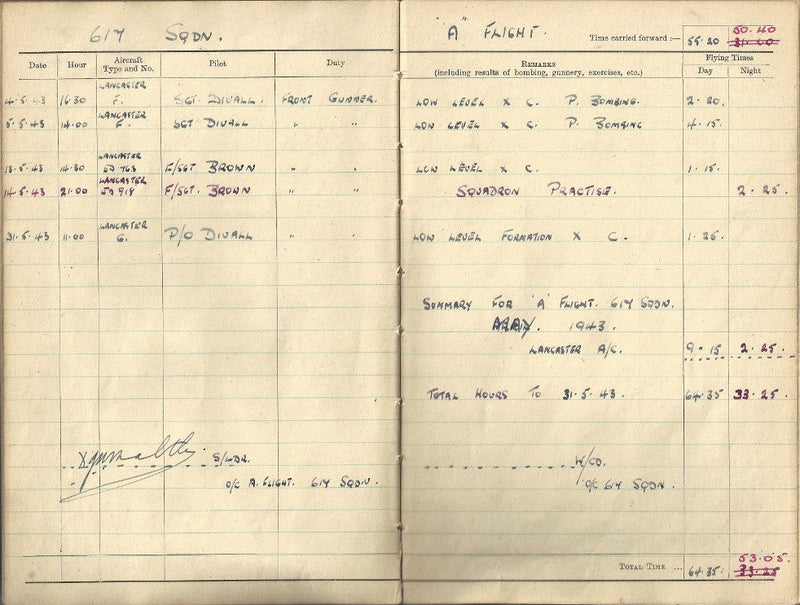 617 SQDN.
"A" FLIGHT.
Time carried forward :— 55.20 50.40 31.00
Date Hour Aircraft Type and No. Pilot Duty
REMARKS (including results of bombing, gunnery, exercises, etc.)
Flying Times
Day Night
4.5.43 16.30 LANCASTER F. SGT DIVALL. FRONT GUNNER. LOW LEVEL X C. P. BOMBING. 2.20.
5.5.43 14.00 LANCASTER F. SGT DIVALL " " LOW LEVEL X C. P. BOMBING 4.15.
13.5.43 14.30 LANCASTER ED 763 F/SGT BROWN " " LOW LEVEL X C. 1.15.
14.5.43 21.00 LANCASTER ED 918 F/SGT. BROWN " " SQUADRON PRACTISE. 2.25.
31.5.43 11.00 LANCASTER G. P/O DIVALL " " LOW LEVEL FORMATION X C. 1.25.
SUMMARY FOR "A" FLIGHT. 617 SQDN.
MAY. 1943.
LANCASTER A/C. 9.15 2.25.
TOTAL HOURS TO 31.5.43. 64.35 33.25.
S/LDR.
O/C A. FLIGHT. 617 SQDN.
W/CO.
O/C 617 SQDN.
TOTAL TIME ... 64.35. 53.05. 33.25